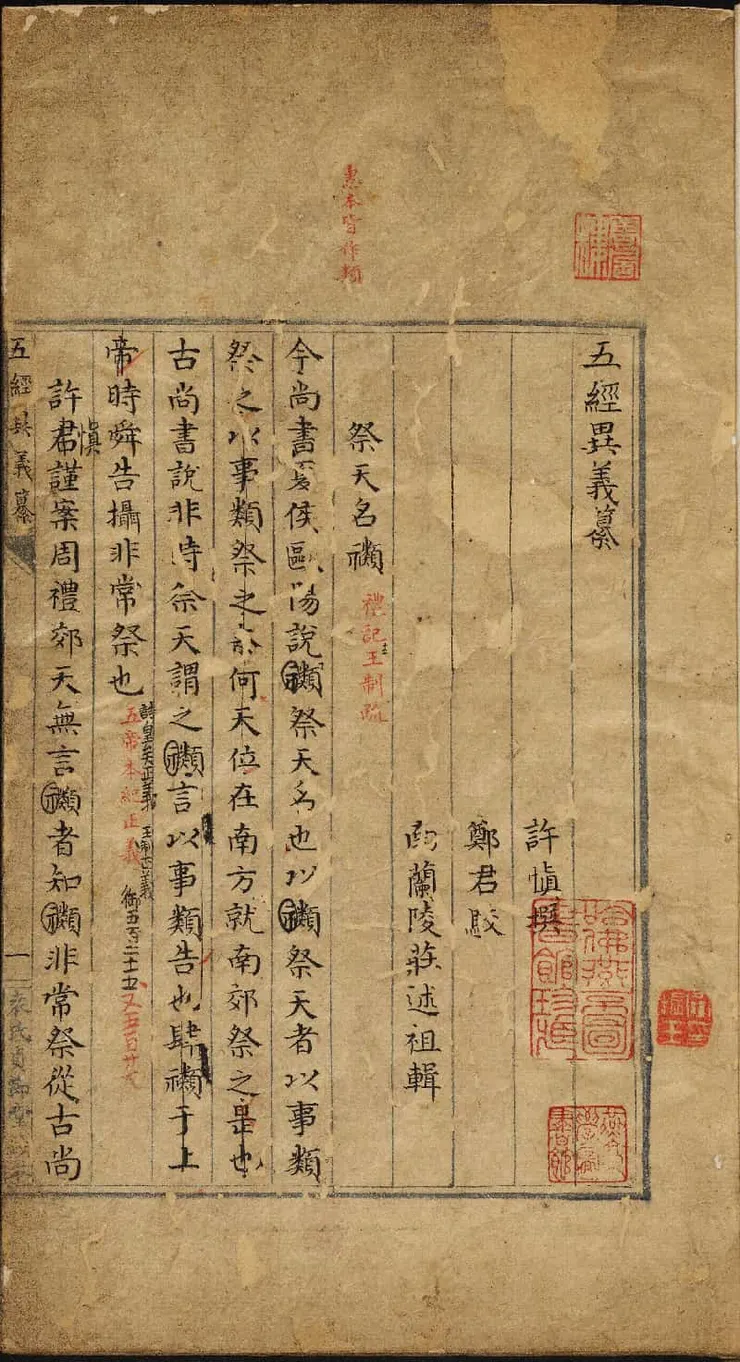 五經異義纂
許慎撰
鄭君駁
蘭陵莊述祖輯
祭天名禷
禮記王制疏
惠本皆作類
今尚書夏侯歐陽說禷祭天名也以禷祭天者以事類
祭之以事類祭之何天位在南方就南郊祭之是也
古尚書說非時祭天謂之禷言以事類告也肆禷于上
帝時舜告攝非常祭也
詩皇矣正義
王制正義
五帝本紀正義
御五百二十五
又五百廿七
許君謹案周禮郊天無言禷者知禷非常祭從古尚
慎
五經異義纂
一
哈佛燕京圖書館珍藏